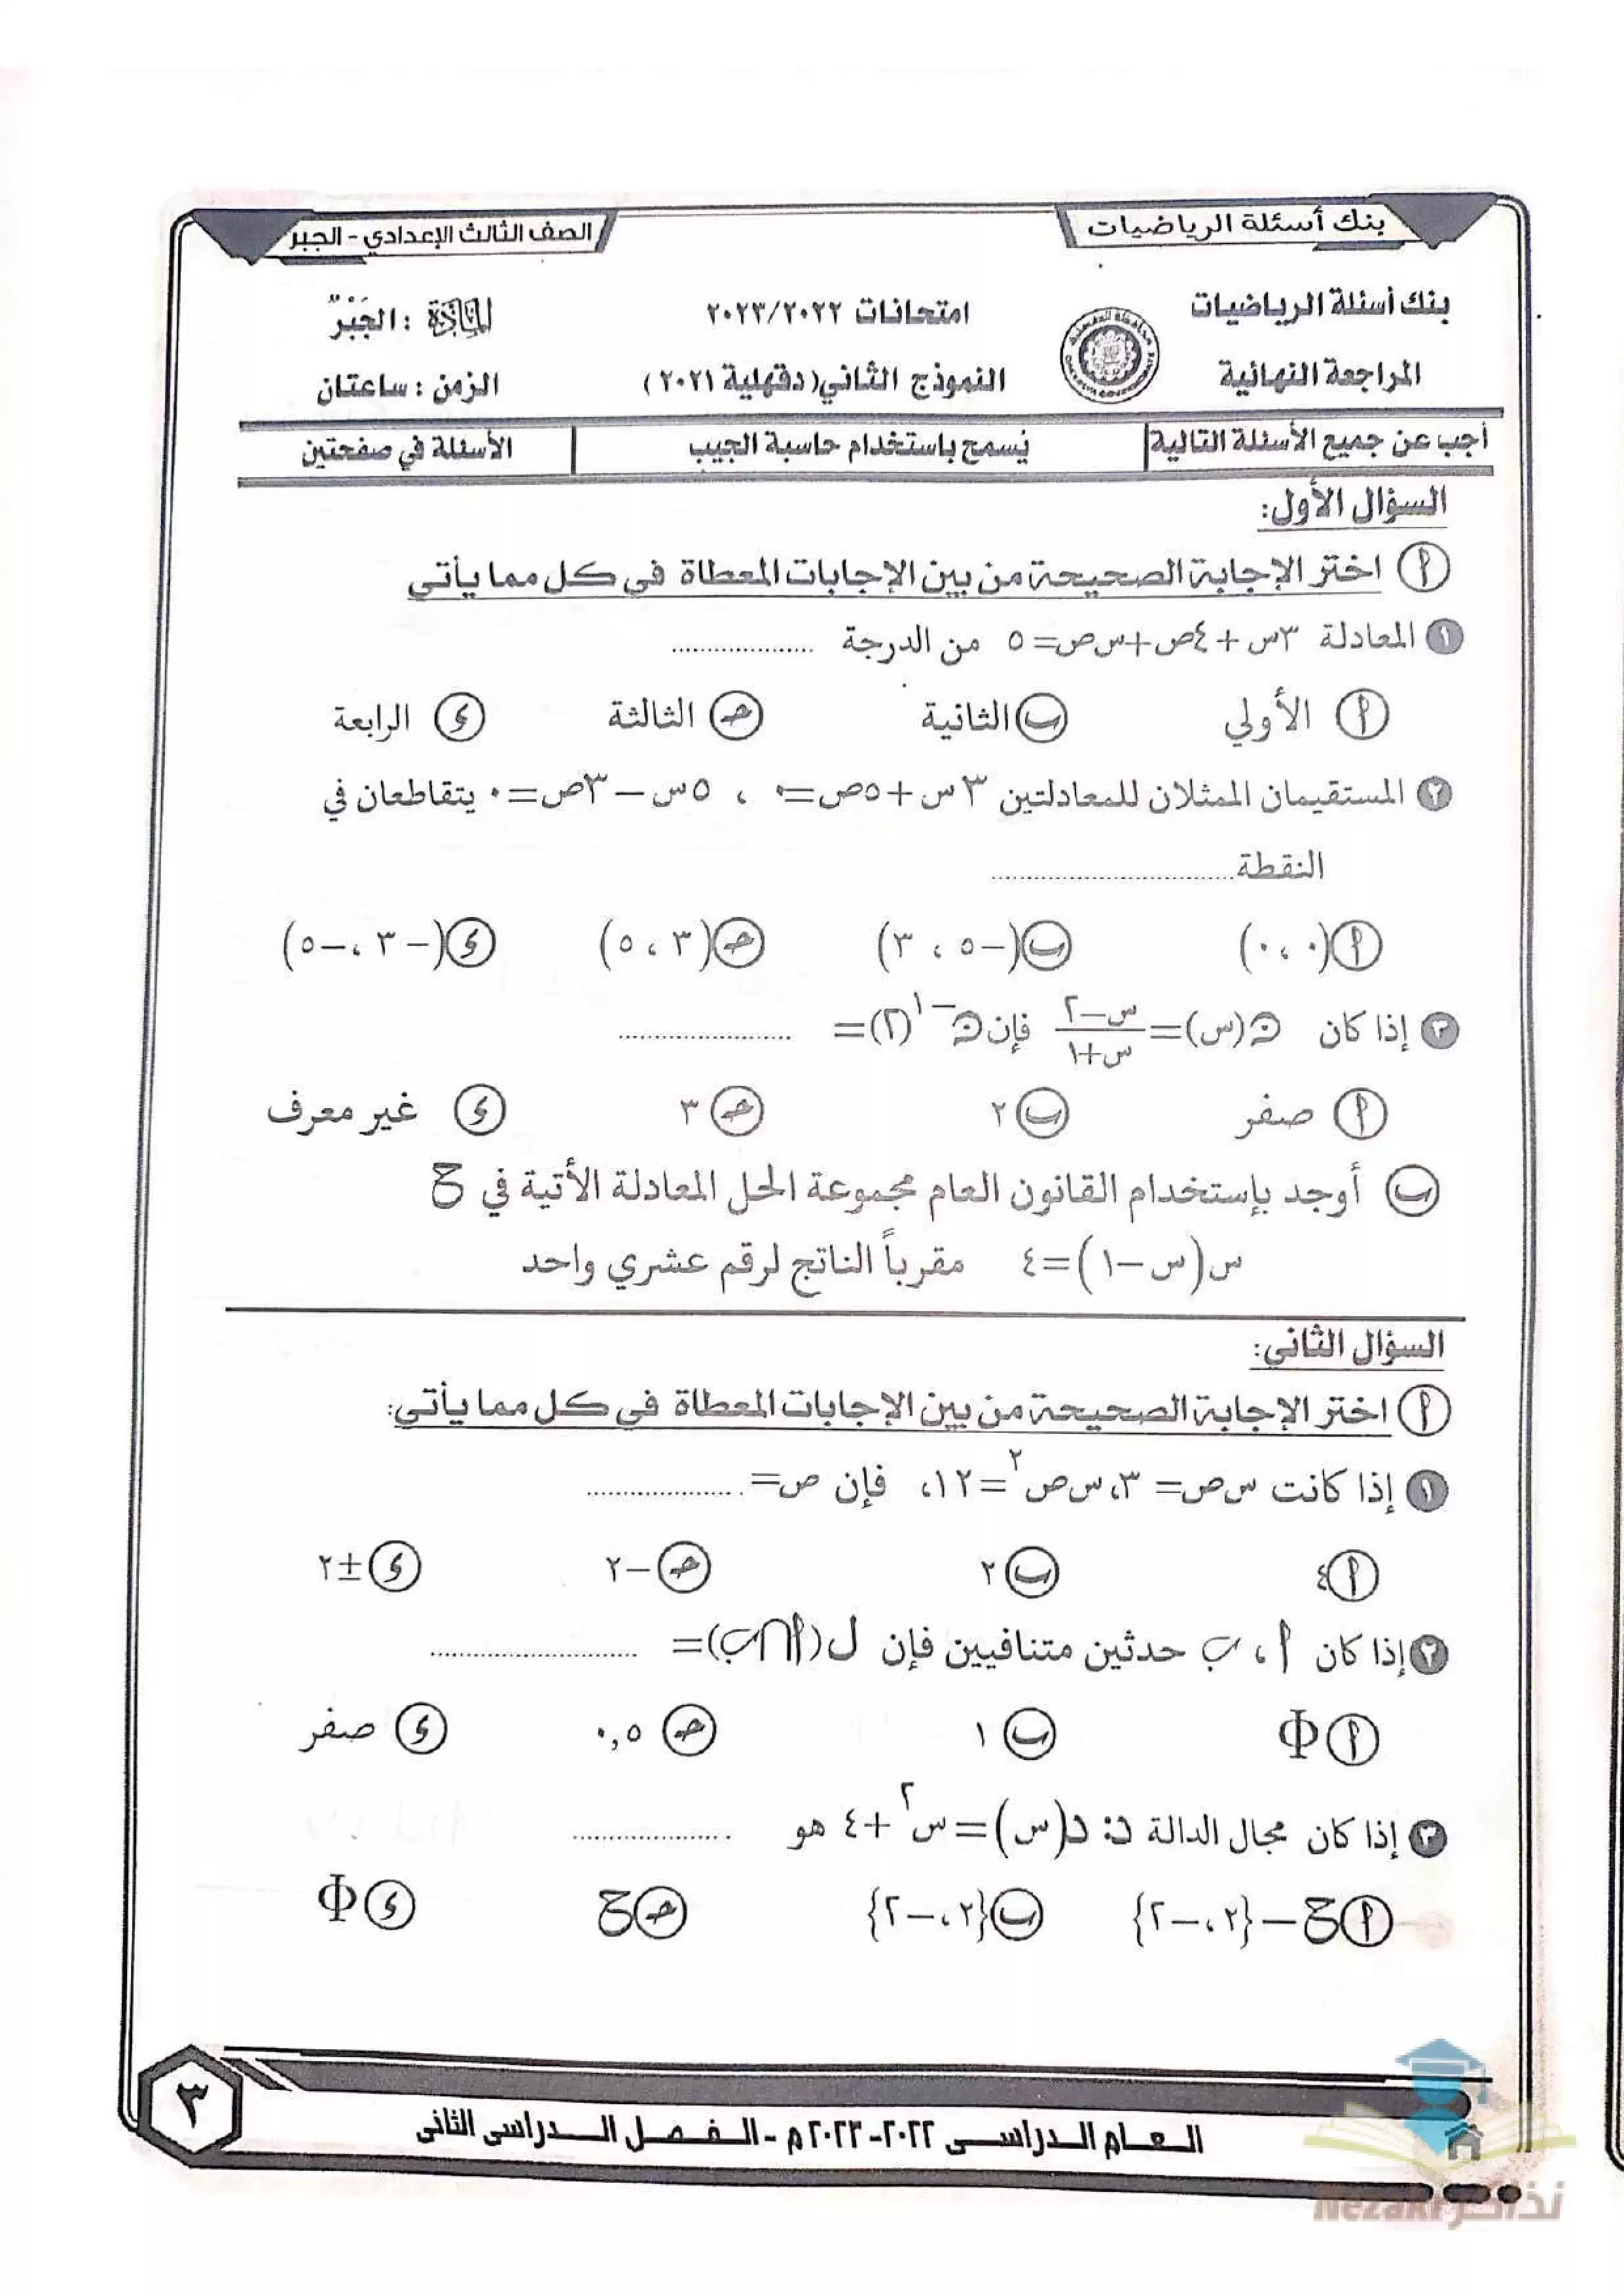 بنك أسئلة الرياضيات
الصف الثالث الإعدادي - الجبر
بنك أسئلة الرياضيات
امتحانات ٢٠٢٣/٢٠٢٢
المَادَّة : الجَبْرُ
المراجعة النهائية
النموذج الثاني (دقهلية ٢٠٢١)
الزمن : ساعتان
أجب عن جميع الأسئلة التالية
يُسمح باستخدام حاسبة الجيب
الأسئلة في صفحتين
السؤال الأول:
أ اختر الإجابة الصحيحة من بين الإجابات المعطاة في كل مما يأتي
١ المعادلة ٣س + ٤ص + س ص = ٥ من الدرجة ....................
أ الأولي ب الثانية جـ الثالثة د الرابعة
٢ المستقيمان الممثلان للمعادلتين ٣س + ٥ص = ٠ ، ٥س – ٣ص = ٠ يتقاطعان في
النقطة ............................
أ (٠ ، ٠) ب (-٥ ، ٣) جـ (٣ ، ٥) د (-٣ ، -٥)
٣ إذا كان ن(س) = (س-٢)/(س+١) فإن ن⁻¹(٢) = ....................
أ صفر ب ٢ جـ ٣ د غير معرف
ب أوجد بإستخدام القانون العام مجموعة الحل المعادلة الأتية في ح
س(س – ١) = ٤ مقرباً الناتج لرقم عشري واحد
السؤال الثاني:
أ اختر الإجابة الصحيحة من بين الإجابات المعطاة في كل مما يأتي:
١ إذا كانت س ص = ٣، س ص² = ١٢، فإن ص = ....................
أ ٤ ب ٢ جـ -٢ د ±٢
٢ إذا كان أ ، ب حدثين متنافيين فإن ل(أ∩ب) = ....................
أ Φ ب ١ جـ ٠,٥ د صفر
٣ إذا كان مجال الدالة د: د(س) = س² + ٤ هو ....................
أ ح – {٢، -٢} ب {٢، -٢} جـ ح د Φ
العام الدراسى ٢٠٢٢-٢٠٢٣م - الفصل الدراسى الثانى
٣
نذاكر Nezakr